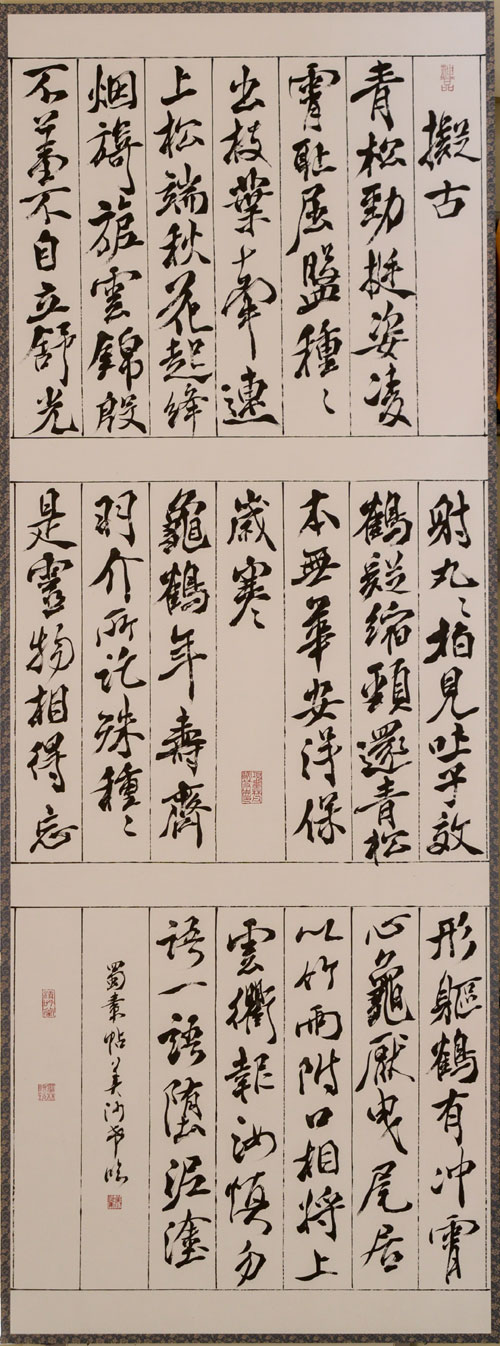 擬古
青松勁挺姿凌
霄恥屈盤種〻
出枝葉牽連
上松端秋花起絳
烟旖旎雲錦殷
不羞不自立舒光
射丸〻柏見吐子效
鶴疑縮頸還青松
本無華安得保
歲寒
龜鶴年壽齊
羽介所託殊種〻
是靈物相得忘
形軀鶴有冲霄
心龜厭曳尾居
以竹兩附口相將上
雲衢報汝慎勿
語一語墮泥塗
蜀素帖 美沙希臨